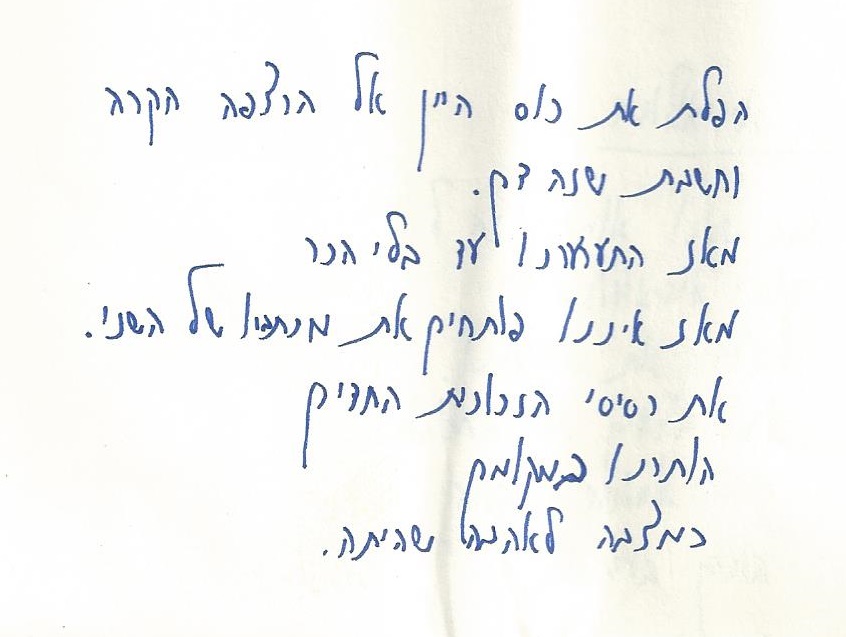 הפלת את כוס היין אל הרצפה הקרה
וחשבת שזה דם.
מאז התעוורנו עד בלי הכר
מאז איננו פותחים את מכתביו של השני.
את רסיסי הזכוכית החדים
הותרנו במקומם
כמצבה לאהבה שהיתה.